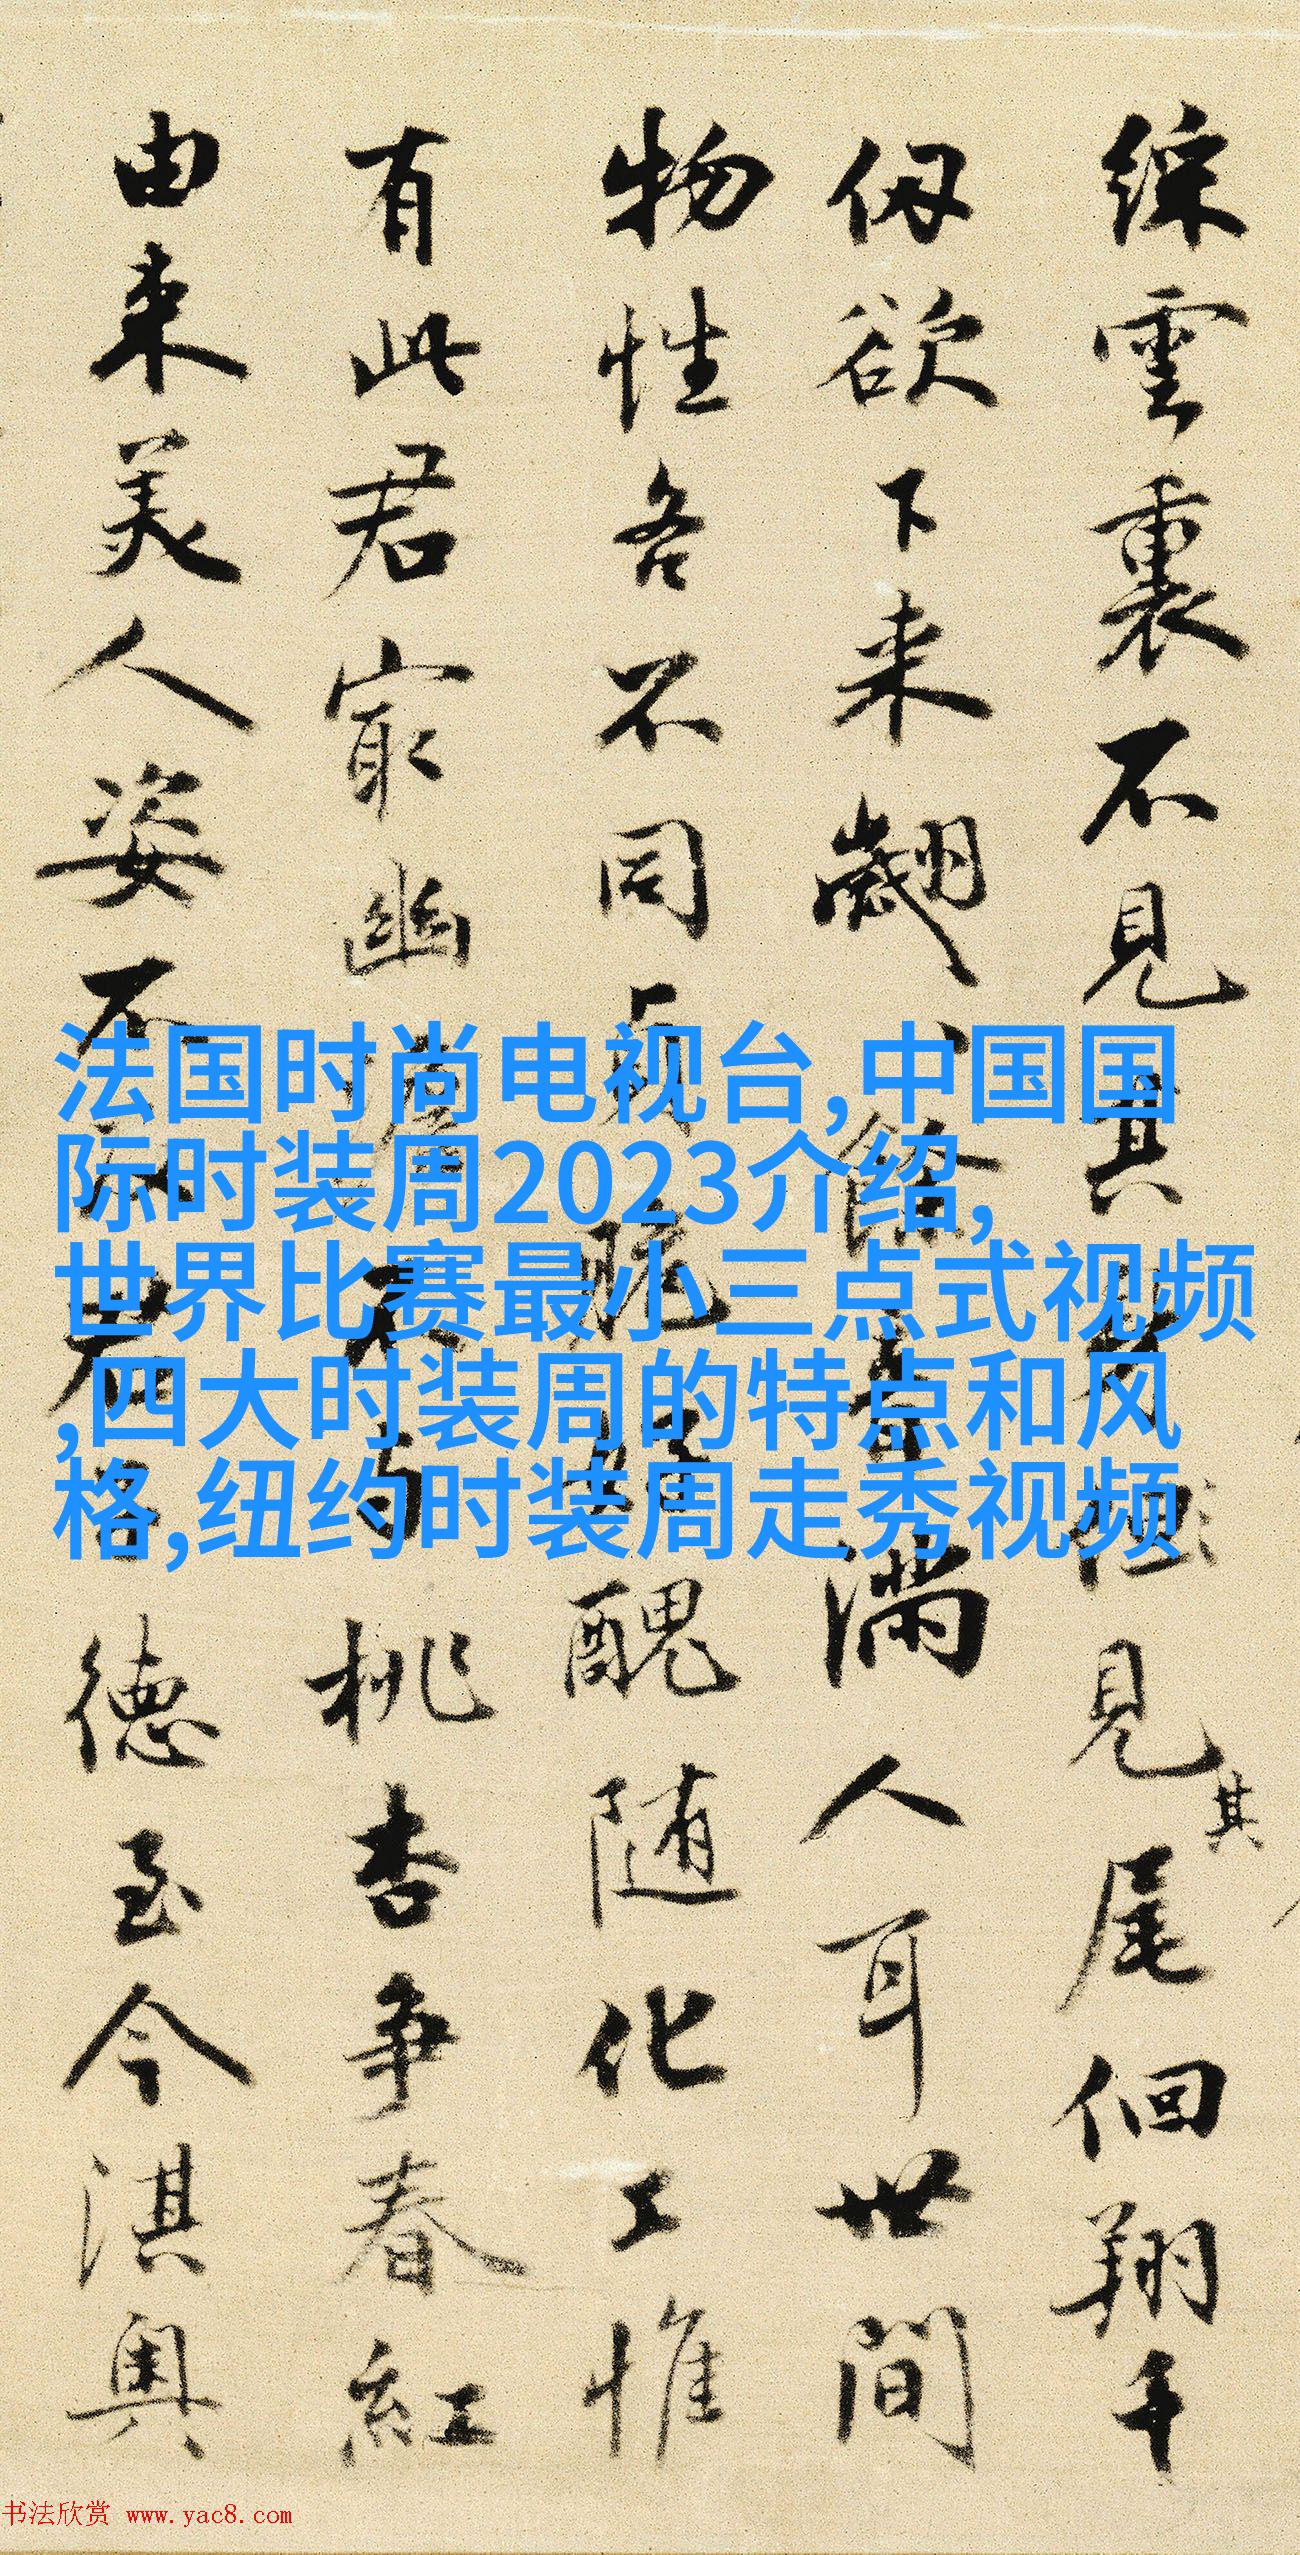 綵雲裏不見其但見其尾佪翔千
仭欲下来翽餘音滿人耳世間
物性各不同貞脆醜随化工惟
有此君最幽不与桃杏争春紅
由来美人姿不君德至今淇奧
法国时尚电视台,中国国
际时装周2023介绍,
世界比赛最小三点式视频
,四大时装周的特点和风
格,纽约时装周走秀视频
书法欣赏 www.yac8.com